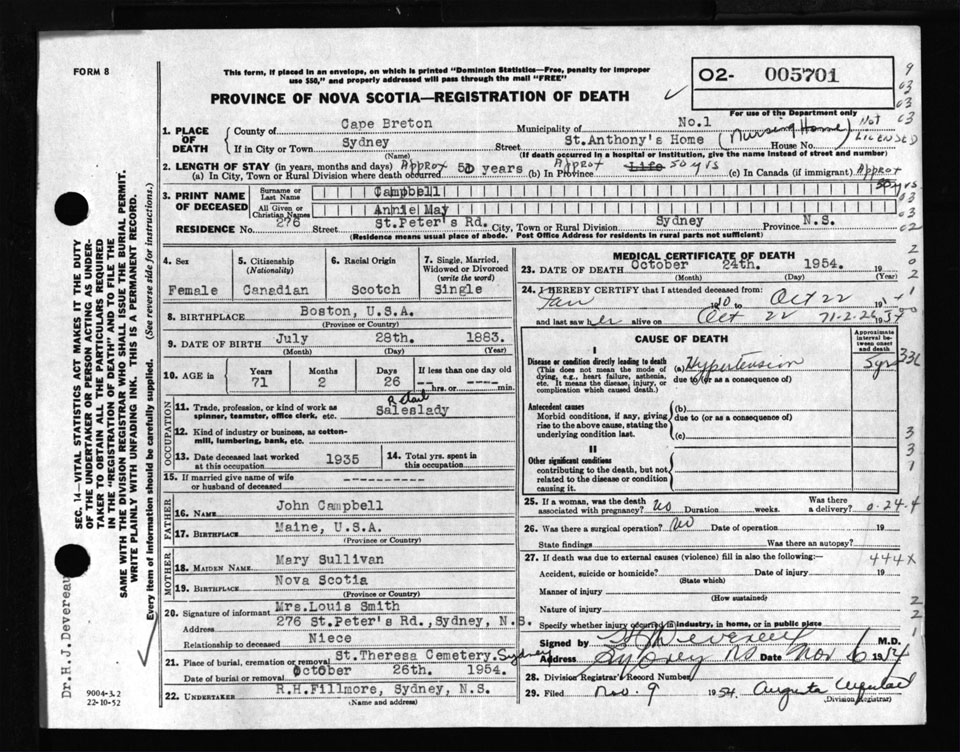 FORM 8
This form, if placed in an envelope, on which is printed "Dominion Statistics—Free, penalty for improper
use $50," and properly addressed will pass through the mail "FREE"
O2- 005701
PROVINCE OF NOVA SCOTIA—REGISTRATION OF DEATH
For use of the Department only
1. PLACE OF DEATH
County of Cape Breton Municipality of No.1
If in City or Town Sydney Street St.Anthony's Home (Nursing Home) House No. Not LICENSED
(Name) (If death occurred in a hospital or institution, give the name instead of street and number)
2. LENGTH OF STAY (in years, months and days) Approx Approx 50 yrs
(a) In City, Town or Rural Division where death occurred 50 years (b) In Province Life (c) In Canada (if immigrant) Approx
50 yrs
3. PRINT NAME OF DECEASED
Surname or Last Name Campbell
All Given or Christian Names Annie May
RESIDENCE No. 276 Street St.Peter's Rd. City, Town or Rural Division Sydney Province N.S.
(Residence means usual place of abode. Post Office Address for residents in rural parts not sufficient)
4. Sex
Female
5. Citizenship (Nationality)
Canadian
6. Racial Origin
Scotch
7. Single, Married, Widowed or Divorced (write the word)
Single
8. BIRTHPLACE Boston, U.S.A.
(Province or Country)
9. DATE OF BIRTH July 28th. 1883.
(Month) (Day) (Year)
10. AGE in Years Months Days If less than one day old
71 2 26 -- hrs. or -- min.
OCCUPATION
11. Trade, profession, or kind of work as spinner, teamster, office clerk, etc. Retail Saleslady
12. Kind of industry or business, as cotton-mill, lumbering, bank, etc.
13. Date deceased last worked at this occupation 1935
14. Total yrs. spent in this occupation
15. If married give name of wife or husband of deceased ----------
FATHER
16. NAME John Campbell
17. BIRTHPLACE Maine, U.S.A.
(Province or Country)
MOTHER
18. MAIDEN NAME Mary Sullivan
19. BIRTHPLACE Nova Scotia
(Province or Country)
20. Signature of informant Mrs.Louis Smith
Address 276 St.Peter's Rd.,Sydney, N.S.
Relationship to deceased Niece
21. Place of burial, cremation or removal St.Theresa Cemetery.Sydney
Date of burial or removal October 26th. 1954.
22. UNDERTAKER R.H.Fillmore, Sydney, N.S.
(Name and address)
MEDICAL CERTIFICATE OF DEATH
23. DATE OF DEATH October 24th. 1954. 19
(Month) (Day) (Year)
24. I HEREBY CERTIFY that I attended deceased from:
Jan to Oct 22
and last saw her alive on Oct 22 71-2-26
CAUSE OF DEATH
Approximate interval between onset and death
I
Disease or condition directly leading to death
(This does not mean the mode of dying, e.g., heart failure, asthenia, etc. It means the disease, injury, or complication which caused death.)
(a) Hypertension 5yr 331
due to (or as a consequence of)
Antecedent causes
Morbid conditions, if any, giving rise to the above cause, stating the underlying condition last.
(b)
due to (or as a consequence of)
(c)
II
Other significant conditions
contributing to the death, but not related to the disease or condition causing it.
25. If a woman, was the death associated with pregnancy? No Duration weeks. Was there a delivery? 0-24-4
26. Was there a surgical operation? No Date of operation 19
State findings Was there an autopsy?
27. If death was due to external causes (violence) fill in also the following:— 444X
Accident, suicide or homicide? Date of injury 19
(State which)
Manner of injury
(How sustained)
Nature of injury
Specify whether injury occurred in industry, in home, or in public place
Signed by M.D.
Address Sydney NS Date Nov 6 1954
28. Division Registrar's Record Number
29. Filed Nov. 9 1954. Augusta
(Division Registrar)
SEC. 14—VITAL STATISTICS ACT MAKES IT THE DUTY
OF THE UNDERTAKER OR PERSON ACTING AS UNDER-
TAKER TO OBTAIN ALL THE PARTICULARS REQUIRED
IN THE "REGISTRATION OF DEATH" AND TO FILE THE
SAME WITH THE DIVISION REGISTRAR WHO SHALL ISSUE THE BURIAL PERMIT.
WRITE PLAINLY WITH UNFADING INK. THIS IS A PERMANENT RECORD.
Every item of information should be carefully supplied. (See reverse side for instructions.)
Dr.H.J.Devereau
9004-3.2
22-10-52